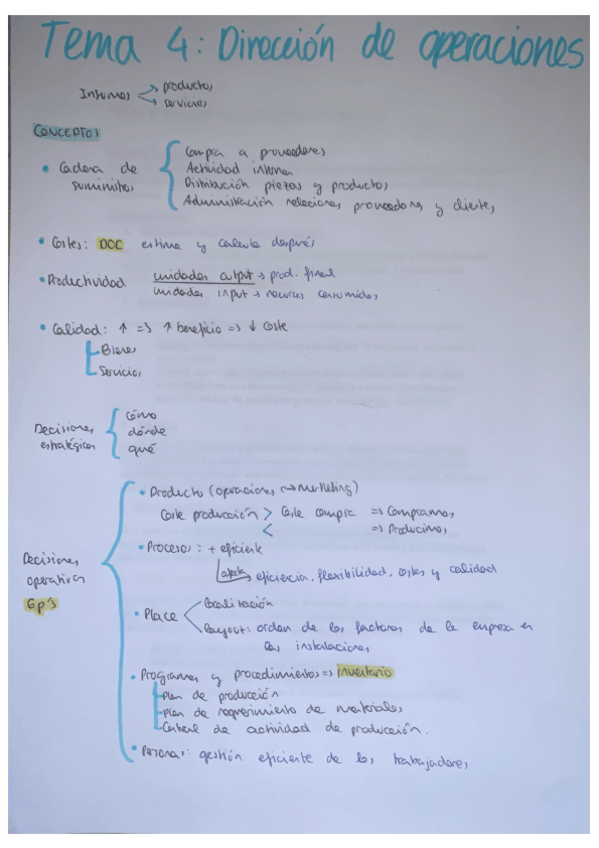 Tema 4: Dirección de operaciones
Insumos → productos
→ servicios
CONCEPTOS
• Cadena de suministros
Compra a proveedores
Actividad interna
Distribución piezas y productos
Administración relaciones proveedores y clientes
• Costes: DOC estima y calcula después
• Productividad unidades output → prod. final
unidades input → recursos consumidos
• Calidad: ↑ => ↑ beneficio => ↓ coste
Bienes
Servicios
Decisiones estratégicas
cómo
dónde
qué
Decisiones operativas
6p's
• Producto (operaciones → marketing)
Coste producción > Coste compra => Compramos
< => Producimos
• Procesos: + eficiente
afecta eficiencia, flexibilidad, costes y calidad
• Place
localización
layout: orden de los factores de la empresa en
las instalaciones
• Programas y procedimientos => inventario
Plan de producción
Plan de requerimiento de materiales
Control de actividad de producción.
• Personas: gestión eficiente de los trabajadores